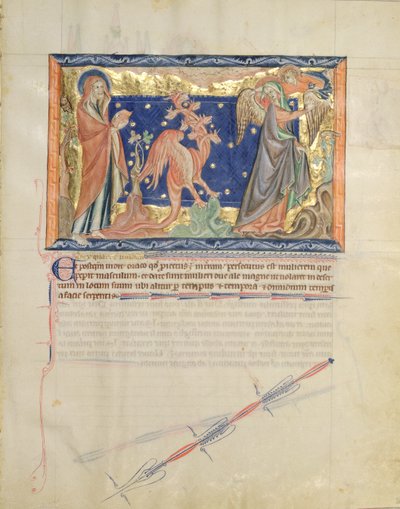 Et postqm uidit draco qd proiectus ÷ in terram persecutus est mulierem que
peperit masculum. et date sunt mulieri due ale magne ut uolaret in deser
tum in locum suum ubi alitur p tempus ⁊ tempora ⁊ dimidium tempis
a facie serpentis.